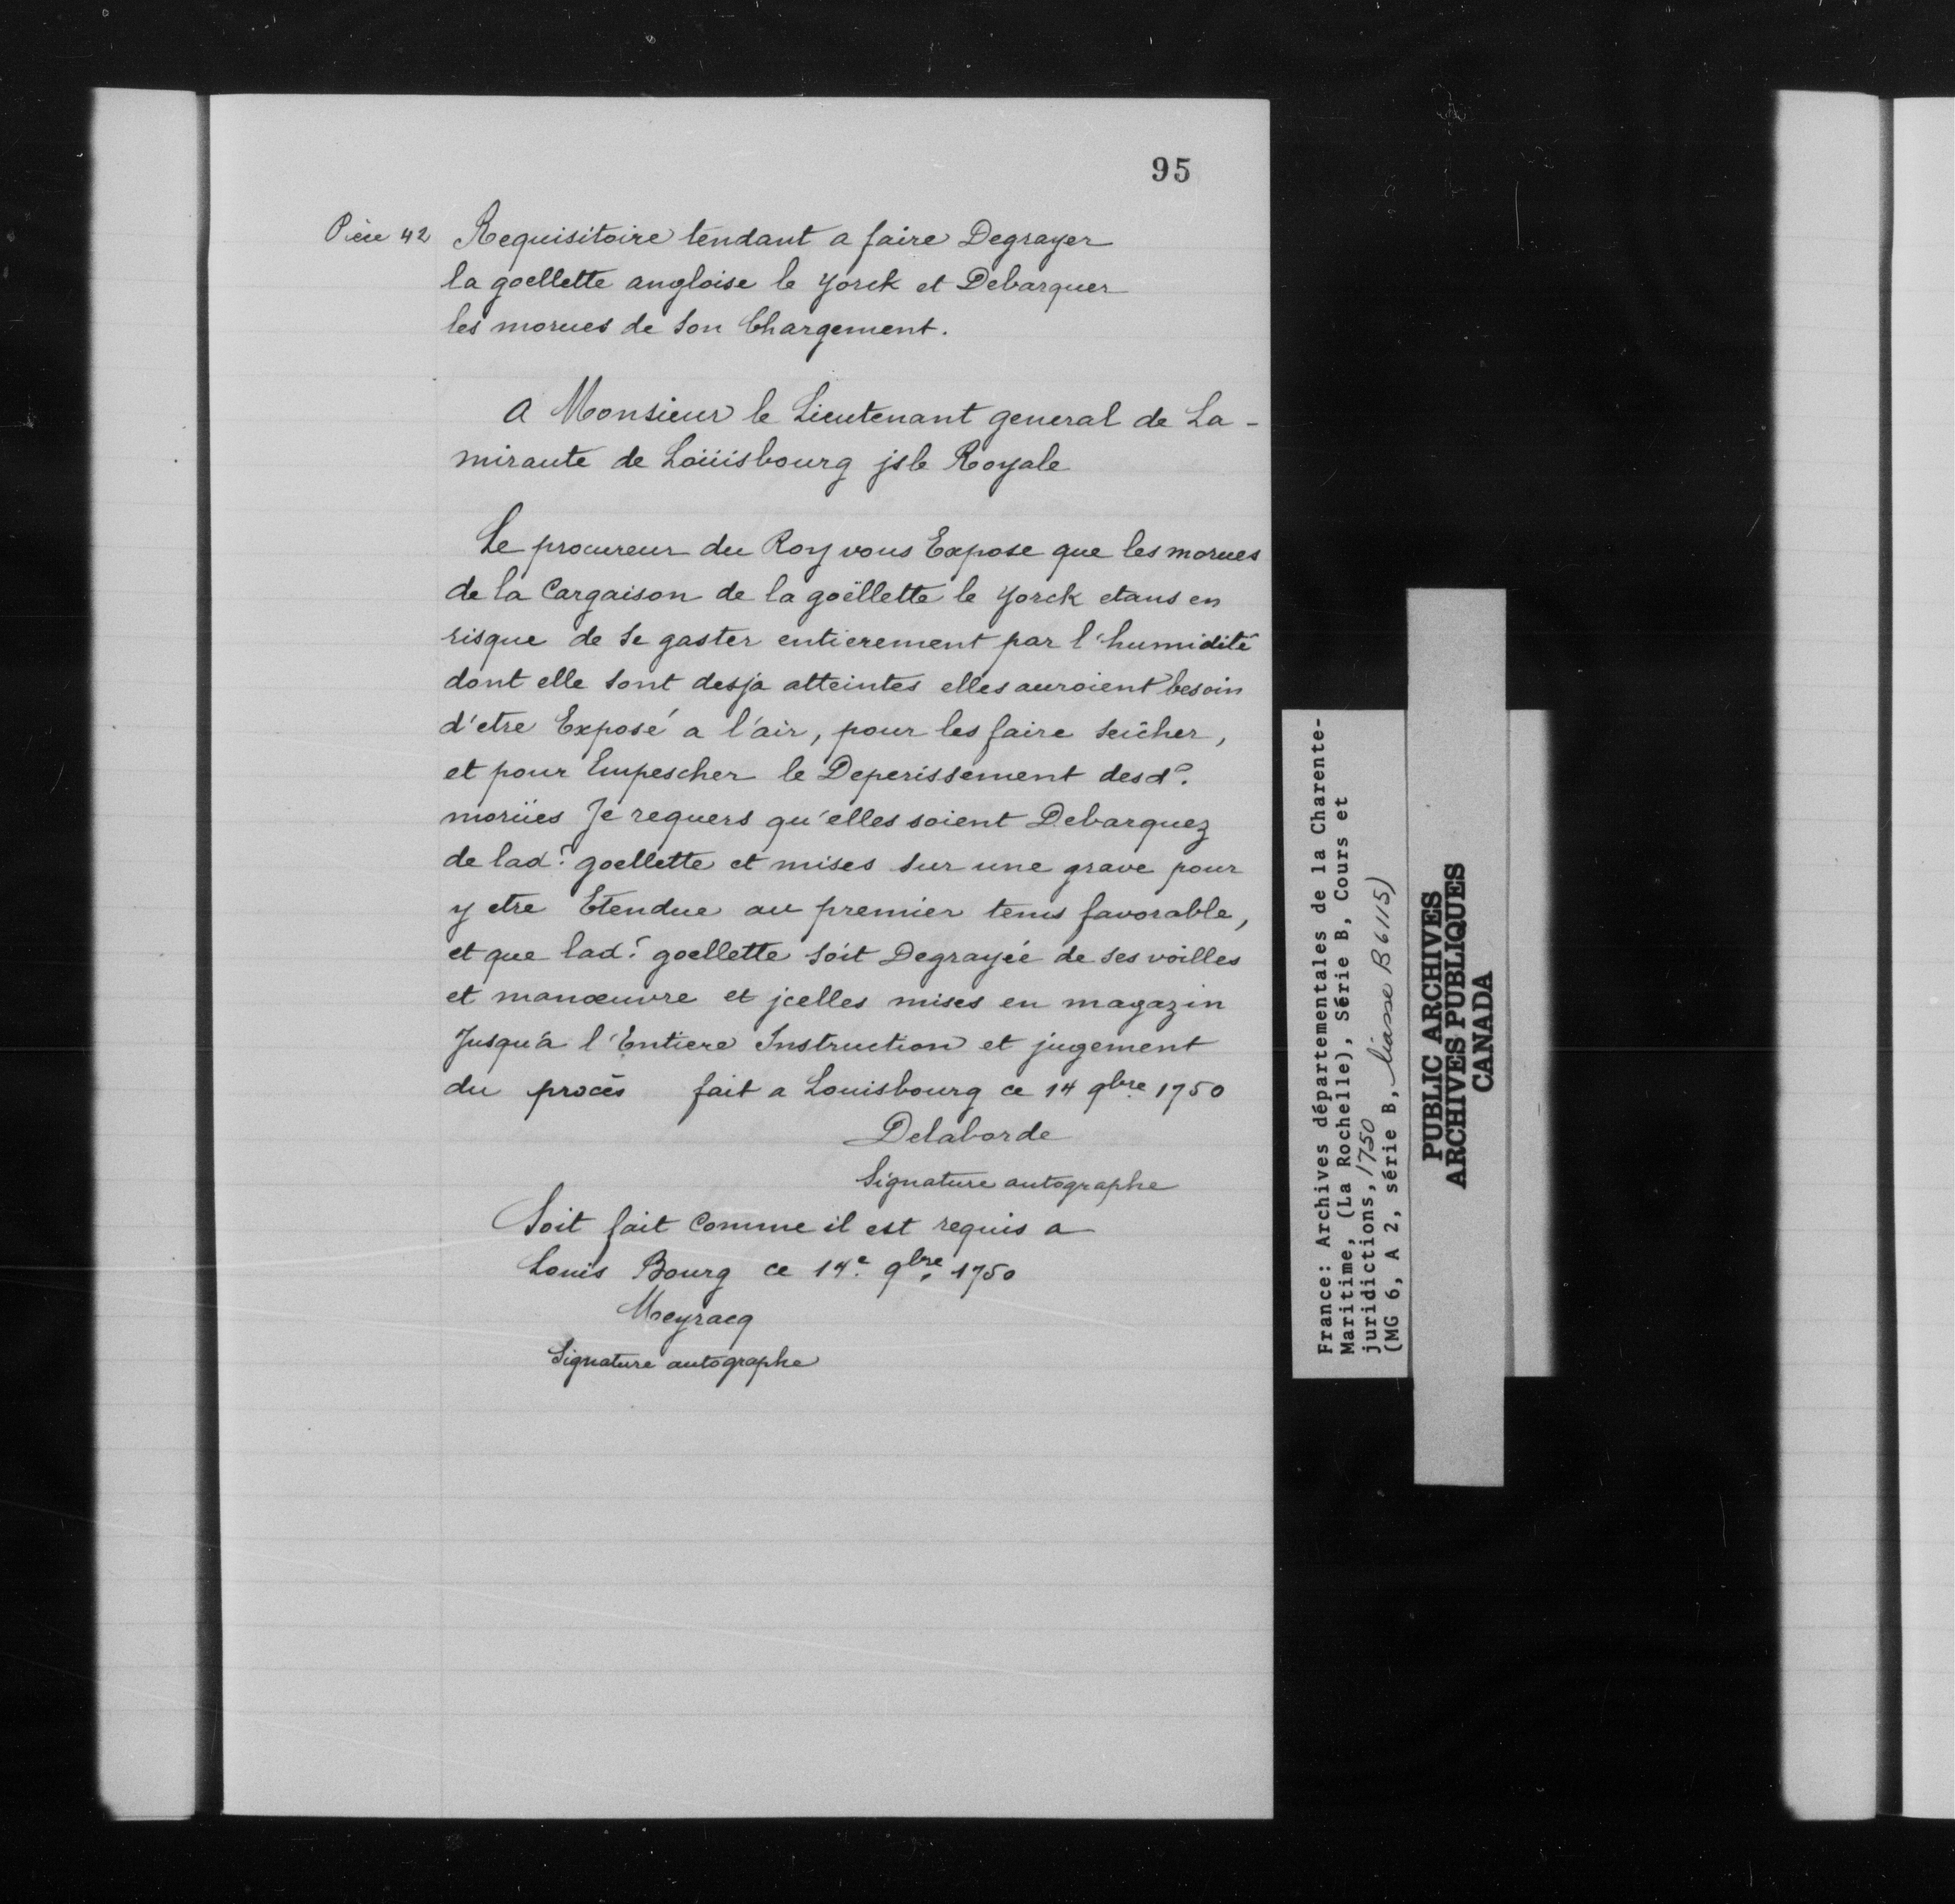 95
Pièce 42 Requisitoire tendant a faire Degrayer
la goellette angloise le Yorck et Debarquer
les morues de son Chargement.
A Monsieur le Lieutenant general de La-
miraute de Loüisbourg jsle Royale
Le procureur du Roy vous Expose que les morues
de la Cargaison de la goëllette le Yorck etans en
risque de se gaster entierement par l'humidité
dont elle sont desja atteintes elles auroient besoin
d'etre Exposé a l'air, pour les faire seicher,
et pour Empescher le Deperissement desd.
morües Je requers qu'elles soient Debarquez
de lad. goellette et mises sur une grave pour
y etre Etendue au premier tems favorable,
et que lad. goellette soit Degrayée de ses voilles
et manœuvre et jcelles mises en magazin
Jusqu'a l'Entiere Instruction et jugement
du procès fait a Louisbourg ce 14 9bre 1750
Delaborde
Signature autographe
Soit fait Comme il est requis a
Louis Bourg ce 14e 9bre 1750
Meyracq
Signature autographe
France: Archives départementales de la Charente-
Maritime, (La Rochelle), Série B, Cours et
juridictions, 1750
(MG 6, A 2, série B, liasse B6115)
PUBLIC ARCHIVES
ARCHIVES PUBLIQUES
CANADA